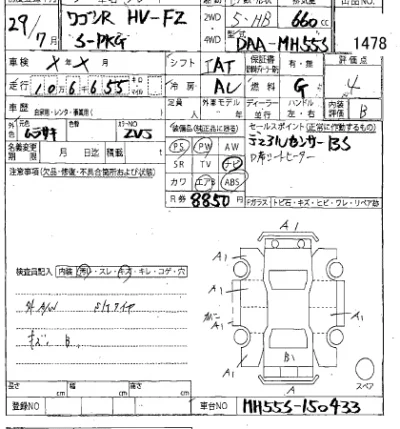 29/7月 ワゴンR HV-FZ S-PKG
2WD 4WD
5・HB
660cc
型式 DAA-MH55S
1478
車検 X年X月
シフト IAT
保証書 有・無
評価点 4
走行 10万6千655
冷房 AC
燃料 G
内装評価 B
車歴 自家用・レンタ・事業用( )
定員 人
外車モデル 年
ディーラー 並行
ハンドル 左・右
外色 元色 色替 カラーNO ZVJ
装備品(純正品に限る)
PS PW AW
SR TV ナビ
カワ エアB ABS
セールスポイント(正常に作動するもの)
D席シートヒーター
名義変更期限 月 日迄 積載 t
R券 8850円
注意事項(欠品・修復・不具合箇所および状態)
Fガラス トビ石・キズ・ヒビ・ワレ・リペア跡
検査員記入 内装 汚レ・スレ・キズ・キレ・コゲ・穴
外 A/W
キズ B
A1
A1 A1
A1
A1
A1
B1
A1
A
スペア
長さ cm 幅 cm 高さ cm
登録NO
車台NO MH55S-150433